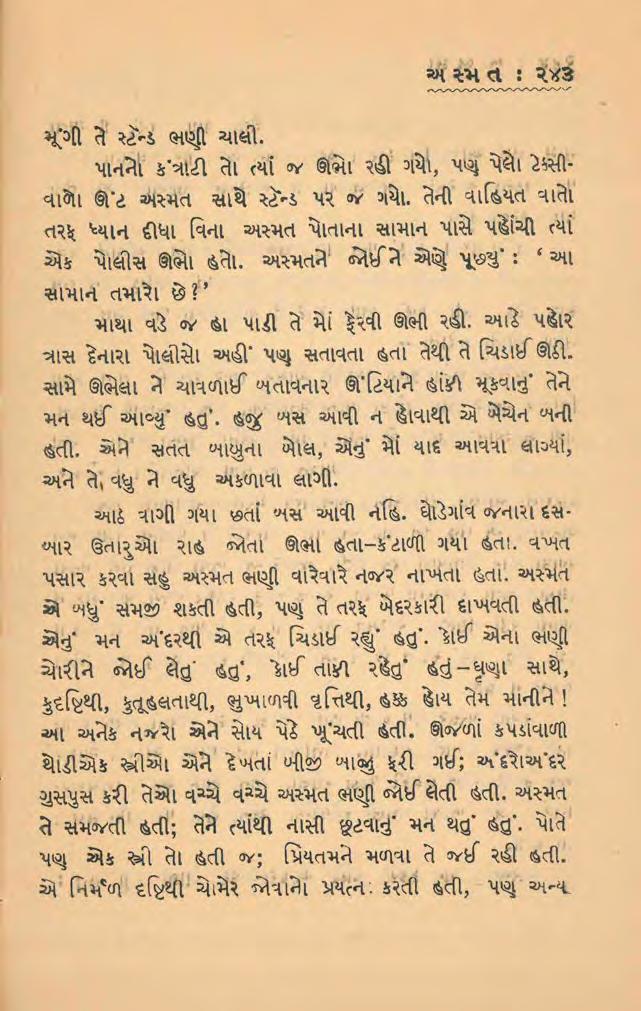 અસ્મત : ૨૪૩
મૂંગી તે સ્ટૅન્ડ ભણી ચાલી.
પાનનો કંત્રાટી તો ત્યાં જ ઊભો રહી ગયો, પણ પેલો ટેક્સી-
વાળો ઊંટ અસ્મત સાથે સ્ટૅન્ડ પર જ ગયો. તેની વાહિયત વાતો
તરફ ધ્યાન દીધા વિના અસ્મત પોતાના સામાન પાસે પહોંચી ત્યાં
એક પોલીસ ઊભો હતો. અસ્મતને જોઈને એણે પૂછ્યું : ‘ આ
સામાન તમારો છે?’
માથા વડે જ હા પાડી તે મોં ફેરવી ઊભી રહી. આઠે પહોર
ત્રાસ દેનારા પોલીસો અહીં પણ સતાવતા હતા તેથી તે ચિડાઈ ઊઠી.
સામે ઊભેલા ને ચાવળાઈ બતાવનાર ઊંટિયાને હાંકી મૂકવાનું તેને
મન થઈ આવ્યું હતું. હજુ બસ આવી ન હોવાથી એ બેચેન બની
હતી. એને સતત બાબુના બોલ, એનું મોં યાદ આવવા લાગ્યાં,
અને તે, વધુ ને વધુ અકળાવા લાગી.
આઠ વાગી ગયા છતાં બસ આવી નહિ. ઘોડેગાંવ જનારા દસ-
બાર ઉતારુઓ રાહ જોતા ઊભા હતા–કંટાળી ગયા હતા. વખત
પસાર કરવા સહુ અસ્મત ભણી વારેવારે નજર નાખતા હતા. અસ્મત
એ બધું સમજી શકતી હતી, પણ તે તરફ બેદરકારી દાખવતી હતી.
એનું મન અંદરથી એ તરફ ચિડાઈ રહ્યું હતું. કોઈ એના ભણી
ચોરીને જોઈ લેતું હતું, કોઈ તાકી રહેતું હતું –ઘૃણા સાથે,
કુદૃષ્ટિથી, કુતૂહલતાથી, ભુખાળવી વૃત્તિથી, હક્ક હોય તેમ માનીને !
આ અનેક નજરો એને સોય પેઠે ખૂંચતી હતી. ઊજળાં કપડાંવાળી
થોડીએક સ્ત્રીઓ એને દેખતાં બીજી બાજુ ફરી ગઈ; અંદરોઅંદર
ગુસપુસ કરી તેઓ વચ્ચે વચ્ચે અસ્મત ભણી જોઈ લેતી હતી. અસ્મત
તે સમજતી હતી; તેને ત્યાંથી નાસી છૂટવાનું મન થતું હતું. પોતે
પણ એક સ્ત્રી તો હતી જ; પ્રિયતમને મળવા તે જઈ રહી હતી.
એ નિર્મળ દૃષ્ટિથી ચોમેર જોવાનો પ્રયત્ન કરતી હતી, પણ અન્ય